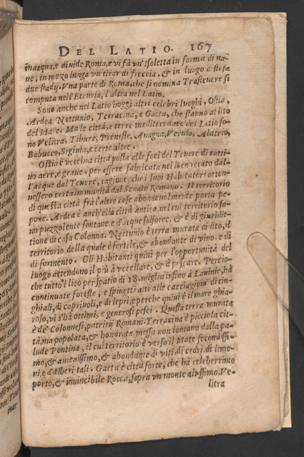 DEL LATIO. 167
in acqua, e diuide Roma, e vi fà vn' isoletta in forma di na-
ue, in mezo larga vn tirar di freccia, & in luogo
due stadij. Vna parte di Roma, che si nomina Trasteuere si
computa nell'Etruria, l'altra nel Latio.
Sono anche nel Latio luoghi altri celebri luoghi, Ostia,
Ardea, Nettunio, Terracina, e Gaeta, che stanno al lito
del Mare. Ma le città, e terre mediterranee del Latio so-
no Velitre, Tibure, Preneste, Anagna, Verulo, Alatro,
Babuco, Signia, e certe altre.
Ostia è vecchia città posta alle foci del Teuere di catti-
uo aere, e graue, per essere fabricata nel luoco
l'acque del Teuere,
nessero erano immunità dal Senato Romano. Il territorio
di questa città frà l'altre cose abondeuolmente porta pe-
pone. Ardea è anch'ella città antica, nel cui territorio so-
no puzzolente fontane, e d'acque sulforee, & è di giurisdit-
tione di casa Colonna. Nettunio è terra murata di lito, il
territorio della quale è fertile, & abondante di vino, e di
di formento. Gli Habitanti quiui per l'opportunità del
luogo attendono il più à vccellare, & à pescare. Percio-
che tutto'l lito per spatio di miglia insino à Lauinio, hà
continuate foreste, e quiui alle caccia
ghiasi, di Capriuoli, e di lepri, e perche quiui è il mare ghia-
roso, vi sono ottimi, e generosi pesci. Questa terra murata
è de' Colonnesi, patritij Romani. Terracina è picciola cit-
tà, ma popolata, & honorata, posta non lontano dalla pa-
lude Pontina, il cui territorio è verso il fecondissi-
mo, & amenissimo, & abondante di viti, di cedri, di limo-
ni, e d'alberi tali. Gaeta è città forte, che hà celeberrimo
porto, & inuincibile Rocca, sopra vn monte altissimo. Ve-
litra